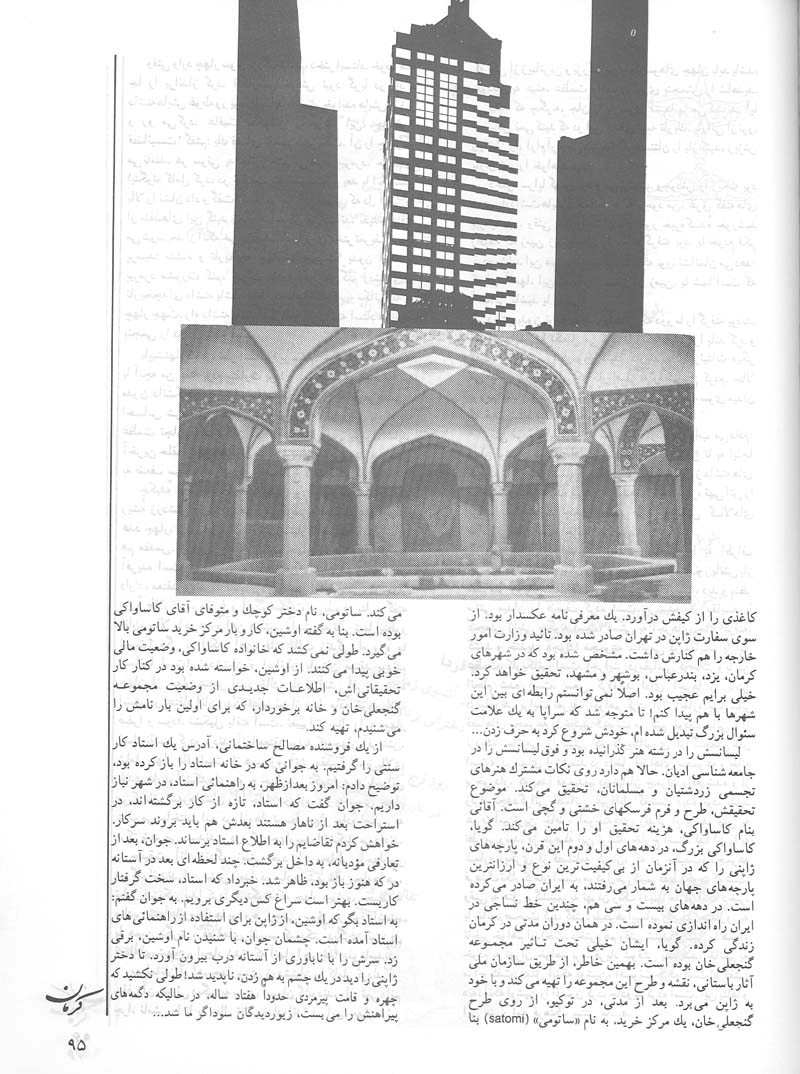 کاغذی را از کیفش درآورد. یك معرفی نامه عکسدار بود. از
سوی سفارت ژاپن در تهران صادر شده بود. تائید وزارت امور
خارجه را هم کنارش داشت. مشخص شده بود که در شهرهای
کرمان، یزد، بندرعباس، بوشهر و مشهد، تحقیق خواهد کرد.
خیلی برایم عجیب بود. اصلا نمی‌توانستم رابطه‌ای بین این
شهرها با هم پیدا کنم! تا متوجه شد که سراپا به یك علامت
سئوال بزرگ تبدیل شده ام، خودش شروع کرد به حرف زدن...
لیسانسش را در رشته هنر گذرانیده بود و فوق لیسانسش را در
جامعه شناسی ادیان. حالا هم دارد روی نکات مشترك هنرهای
تجسمی زردشتیان و مسلمانان، تحقیق می‌کند. موضوع
تحقیقش، طرح و فرم فرسکهای خشتی و گچی است. آقائی
بنام کاساواکی، هزینه تحقیق او را تامین می‌کند. گویا،
کاساواکی بزرگ، در دهه‌های اول و دوم این قرن، پارچه‌های
ژاپنی را که در آنزمان از بی‌کیفیت‌ترین نوع و ارزانترین
پارچه‌های جهان به شمار می‌رفتند، به ایران صادر می‌کرده
است. در دهه‌های بیست و سی هم، چندین خط نساجی در
ایران راه اندازی نموده است. در همان دوران مدتی در کرمان
زندگی کرده. گویا، ایشان خیلی تحت تـاثیر مجمـوعه
گنجعلی‌خان بوده است. بهمین خاطر، از طریق سازمان ملی
آثار باستانی، نقشه و طرح این مجموعه را تهیه می‌کند و با خود
به ژاپن می‌برد. بعد از مدتی، در توکیو، از روی طرح
گنجعلی‌خان، یك مرکز خرید، به نام «ساتومی» (satomi) بنا
می کند. ساتومی، نام دختر کوچك و متوفای آقای کاساواکی
بوده است. بنا به گفته اوشین، کار و بار مرکز خرید ساتومی بالا
می‌گیرد. طولی نمی کشد که خانواده کاساواکی، وضعیت مالی
خوبی پیدا می‌کنند. از اوشین، خواسته شده بود در کنار کار
تحقیقاتی‌اش، اطلاعـات جدیـدی از وضعیت مجموعـه
گنجعلی‌خان و خانه برخوردار، که برای اولین بار نامش را
می‌شنیدم، تهیه کند.
از یك فروشنده مصالح ساختمانی، آدرس یك استاد کار
سنتی را گرفتیم. به جوانی که در خانه استاد را باز کرده بود،
توضیح دادم: امروز بعدازظهر، به راهنمائی استاد، در شهر نیاز
داریم. جوان گفت که استاد، تازه از کار برگشته‌اند، در
استراحت بعد از ناهار هستند بعدش هم باید بروند سرکار.
خواهش کردم تقاضایم را به اطلاع استاد برساند. جوان، بعد از
تعارفی مؤدبانه، به داخل برگشت. چند لحظه‌ای بعد در آستانه
در که هنوز باز بود، ظاهر شد. خبرداد که استاد، سخت گرفتار
کاریست. بهتر است سراغ کس دیگری برویم. به جوان گفتم:
به استاد بگو که اوشین، از ژاپن برای استفاده از راهنمائی‌های
استاد آمده است. چشمان جوان، با شنیدن نام اوشین، برقی
زد. سرش را با ناباوری از آستانه درب بیرون آورد. تا دختر
ژاپنی را دید در یك چشم به هم زدن، ناپدید شد! طولی نکشید که
چهره و قامت پیرمردی حدوداً هفتاد ساله، در حالیکه دگمه‌های
پیراهنش را می‌بست، زیور دیدگان سوداگر ما شد...
کرمان
۹۵